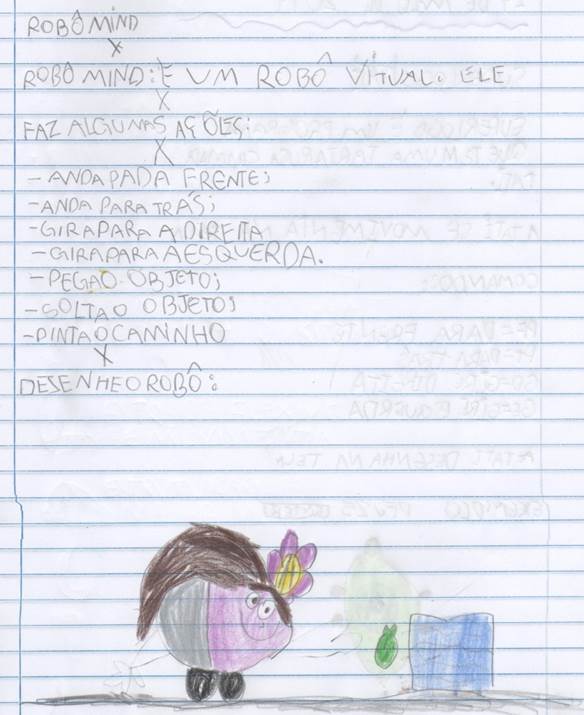 ROBÔ MIND
X
ROBÔ MIND: É UM ROBÔ VITUAL. ELE
X
FAZ ALGUMAS AÇÕES:
X
- ANDA PADA FRENTE;
- ANDA PARA TRÁS;
- GIRA PARA A DIREITA
- GIRA PARA A ESQUERDA.
- PEGA O OBJETO;
- SOLTA O OBJETO;
- PINTA O CAMINHO
X
DESENHE O ROBÔ: